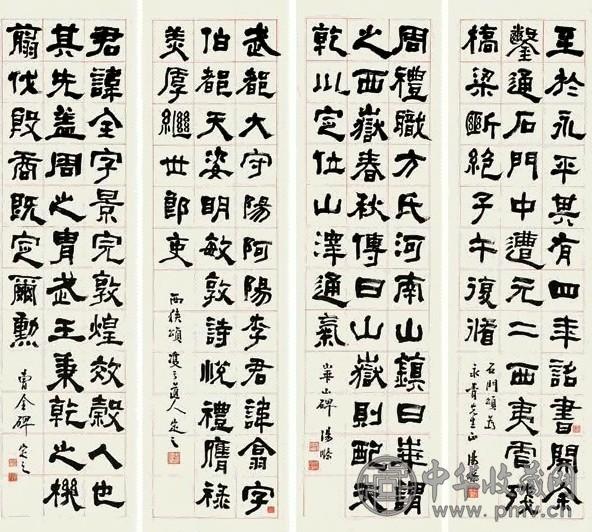 至於永平其有四年詔書開余
鑿通石門中遭元二西夷虐殘
橋梁斷絕子午復循
石門頌為
先生正 湯滌
周禮職方氏河南山鎮曰華謂
之西嶽春秋傳曰山嶽則配天
乾川定位山澤通氣
華山碑 湯滌
武都大守陽阿陽李君諱翕字
伯都天姿明敏敦詩悅禮膺祿
美厚繼世郎吏
西狹頌 道人定之
君諱全字景完敦煌效穀人也
其先蓋周之胄武王秉乾之機
翦伐殷商既定爾勳
曹全碑 定之
中华收藏网
www.pmv.cn